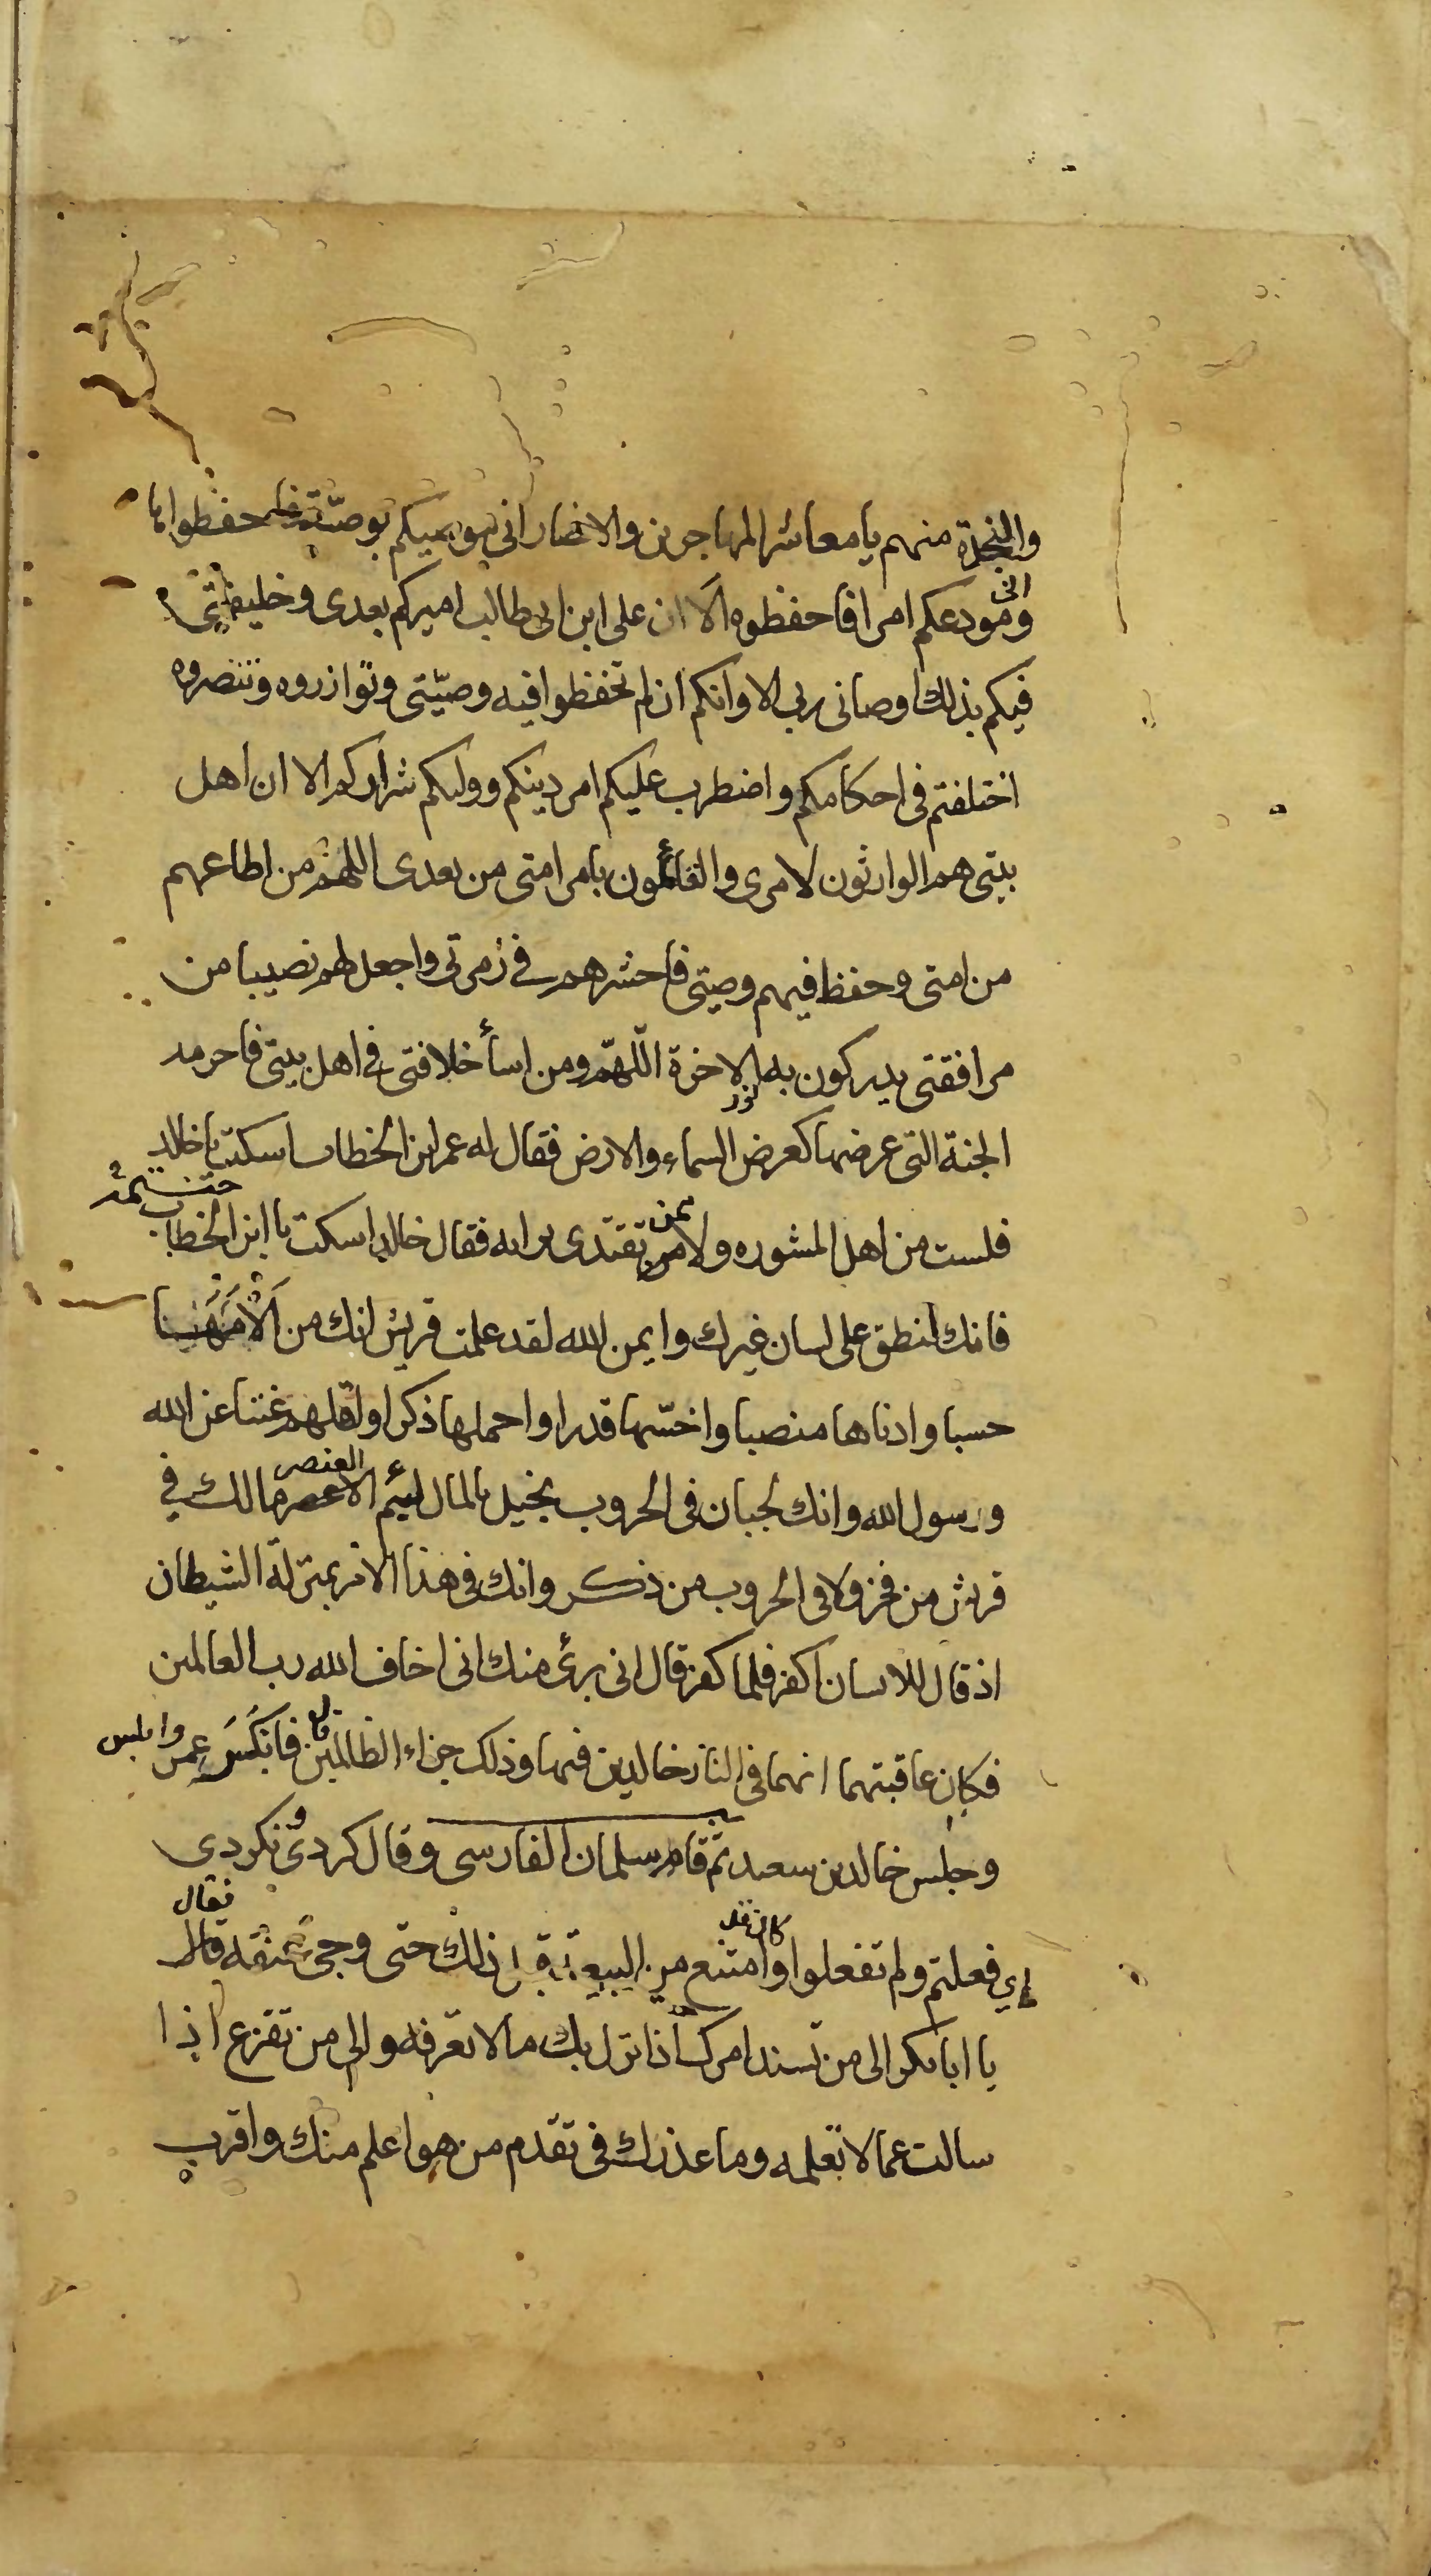 والنجدة منهم يا معاشر المهاجرين والانصار اني موصيكم بوصية فاحفظوها
واني مودعكم امرا فاحفظوه الا ان على ابن ابى طالب اميركم بعدى وخليفتى
فيكم بذلك اوصانى ربي الا وانكم ان لم تحفظوا فيه وصيّتى وتوازروه وتنصروه
اختلفتم فى احكامكم واضطرب عليكم امر دينكم ووليكم شراركم الا ان اهل
بيتى هم الوارثون لامرى والقائمون بامر امتى من بعدى اللهم من اطاعهم
من امتى وحفظ فيهم وصيتى فاحشرهم في زمرتى واجعل لهم نصيبا من
مرافقتى يدركون به نور الاخرة اللّهمّ ومن اسأ خلافتى في اهل بيتى فاحرمه
الجنة التى عرضها كعرض السماء والارض فقال له عمر ابن الخطاب اسكت يا خالد
فلست من اهل المشوره ولا ممن تقتدى برايه فقال خالد اسكت يا ابن الخطاب
فانك تنطق على لسان غيرك وايمن الله لقد علمت قريش انك من
حسبا وادناها منصبا واخسّها قدرا واخملها ذكرا واقلهم غنا عن الله
ورسول الله وانك لجبان فى الحروب بخيل بالمال لئيم العنصر مالك في
قريش من فخر ولا فى الحروب من ذكر وانك فى هذا الامر بمنزلة الشيطان
اذ قال للانسان اكفر فلما كفر قال انى برئ منك انى اخاف الله رب العالمين
فكان عاقبتهما انهما فى النار خالدين فيها وذلك جزاء الظالمين قال فانكس عمر وابلس
وجلس خالد بن سعيد ثم قام سلمان الفارسى وقال كردى ونكردي
اي فعلتم ولم تفعلوا وكان قد امتنع من البيعة قبل ذلك حتى وجئ عنقه فقال
يا ابا بكر الى من تسند امرك اذا نزل بك ما لا تعرفه والى من تفزع اذا
سالت عما لا تعلمه وما عذرك فى تقدم من هو اعلم منك واقرب